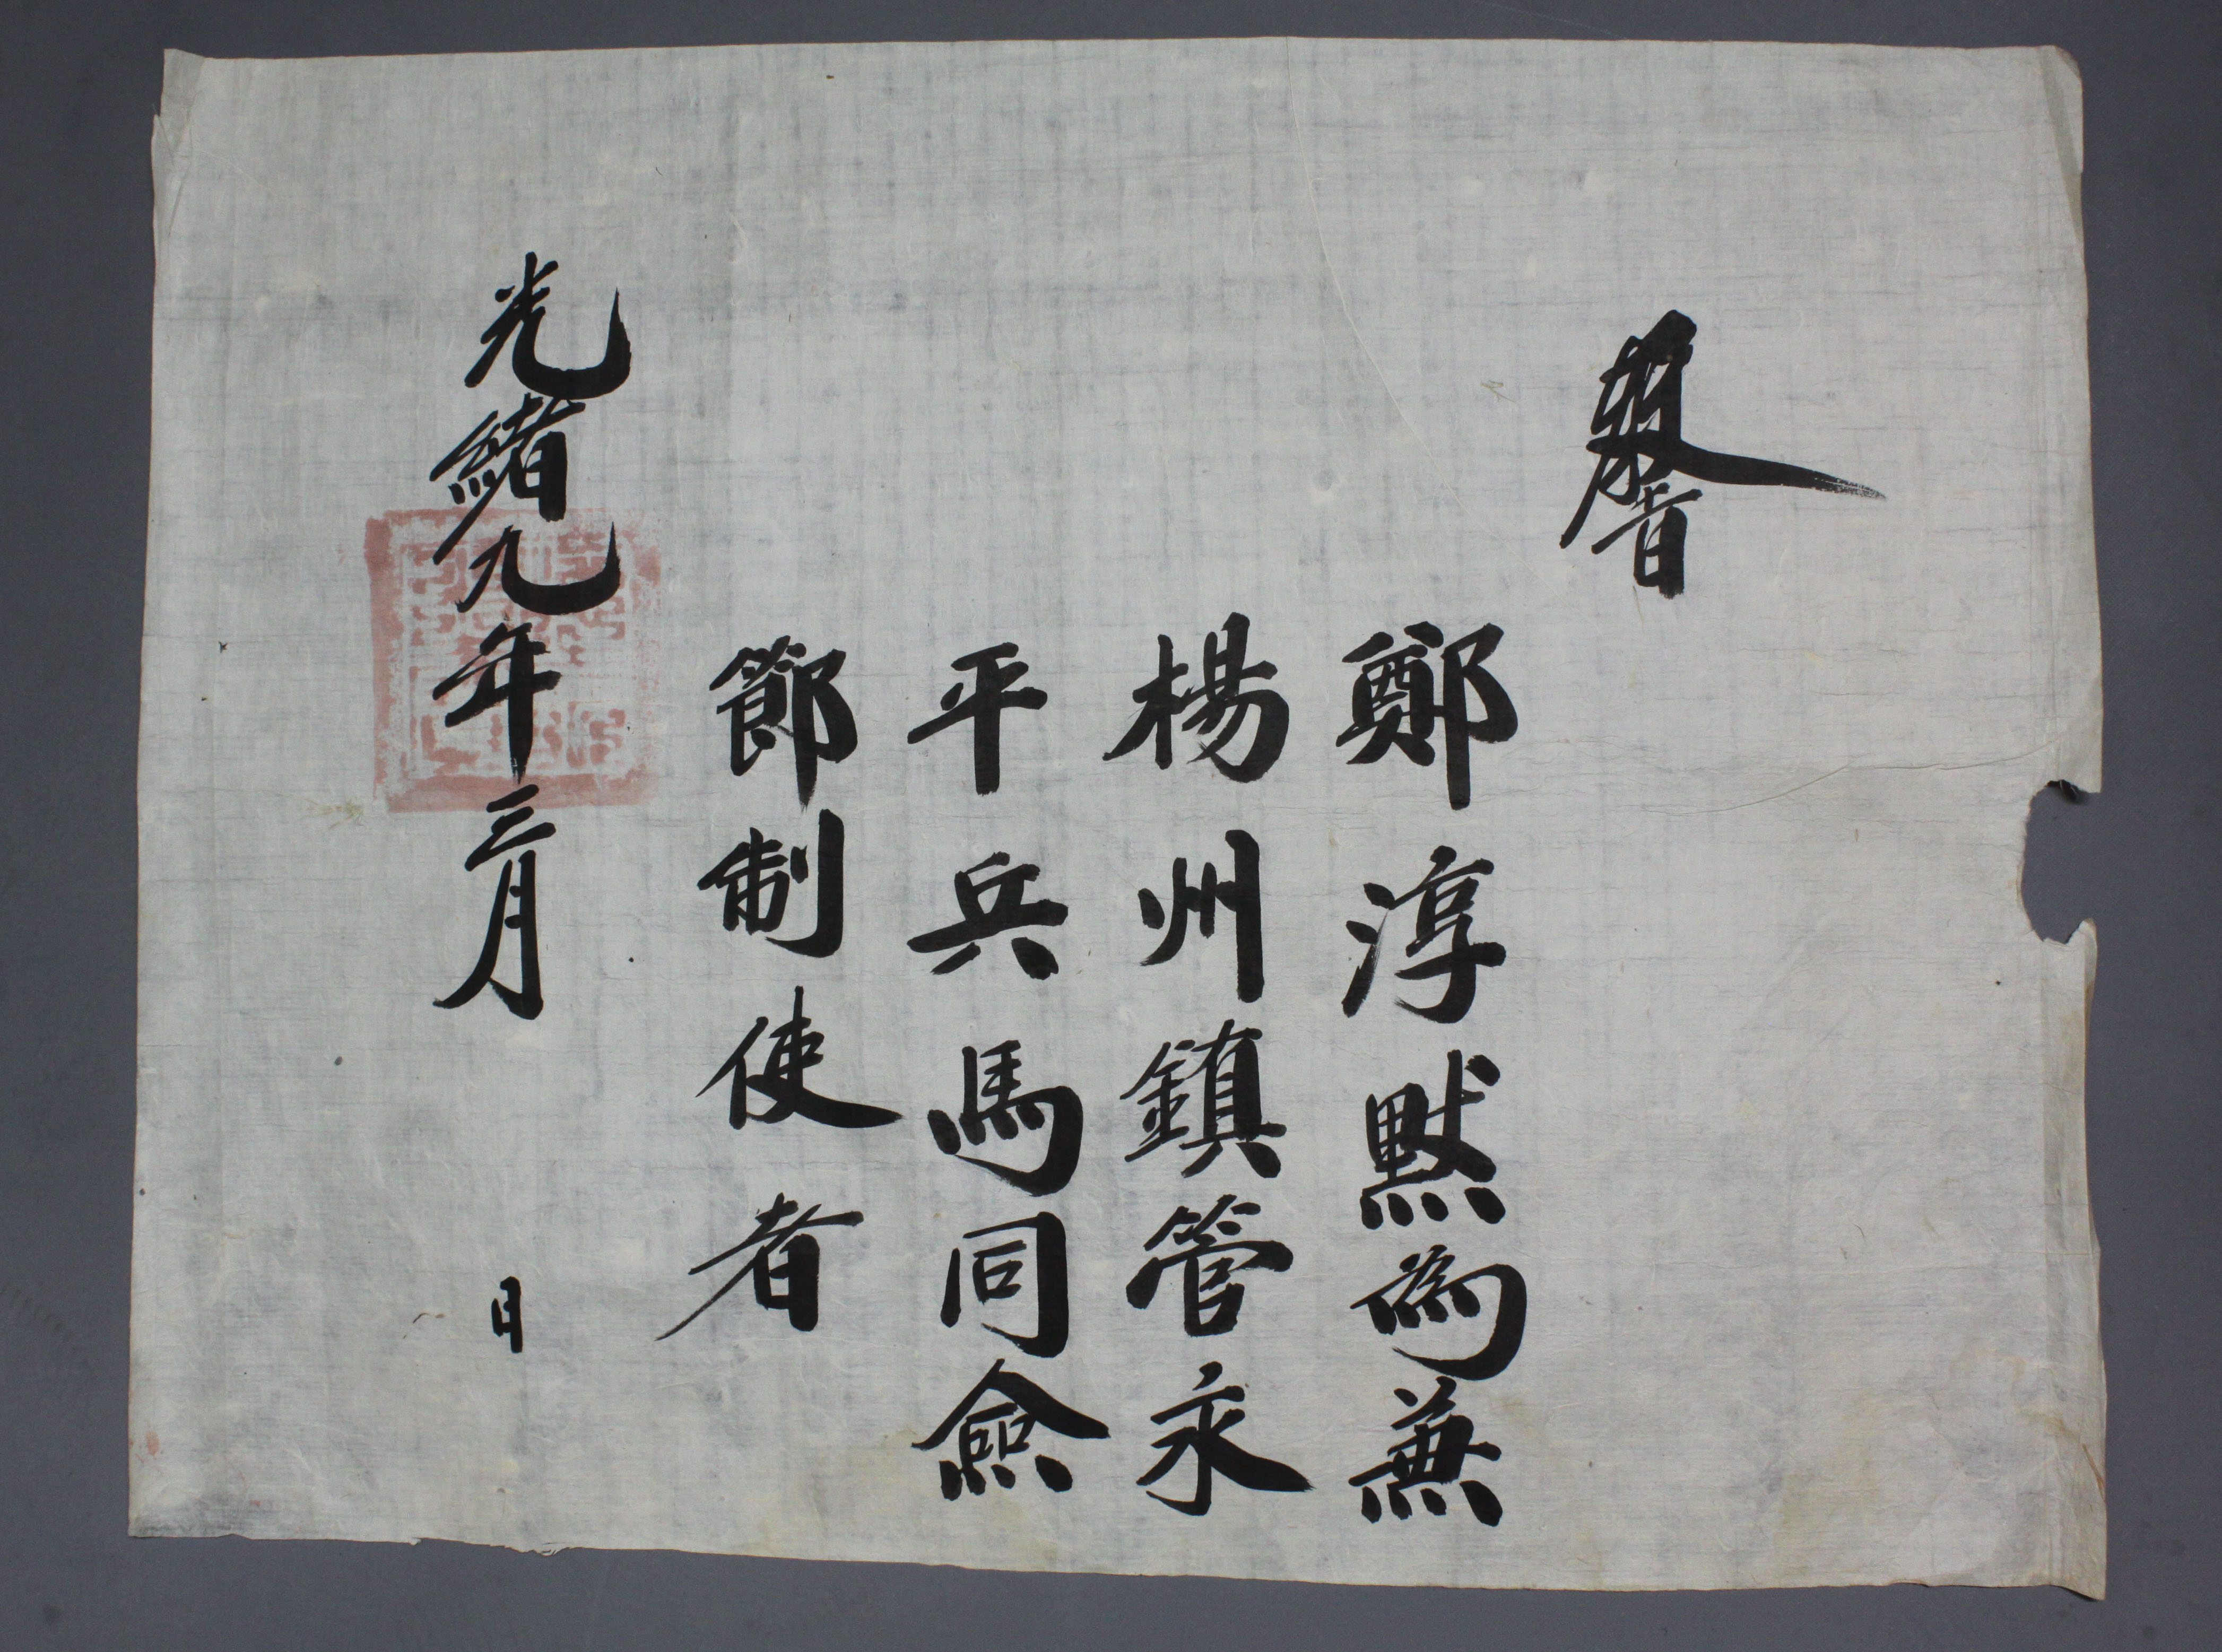 敎旨
鄭淳默爲兼
楊州鎭管永
平兵馬同僉
節制使者
光緖九年三月　日